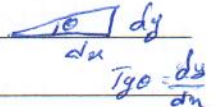 θ dy
dx
Tgθ = dy/dx